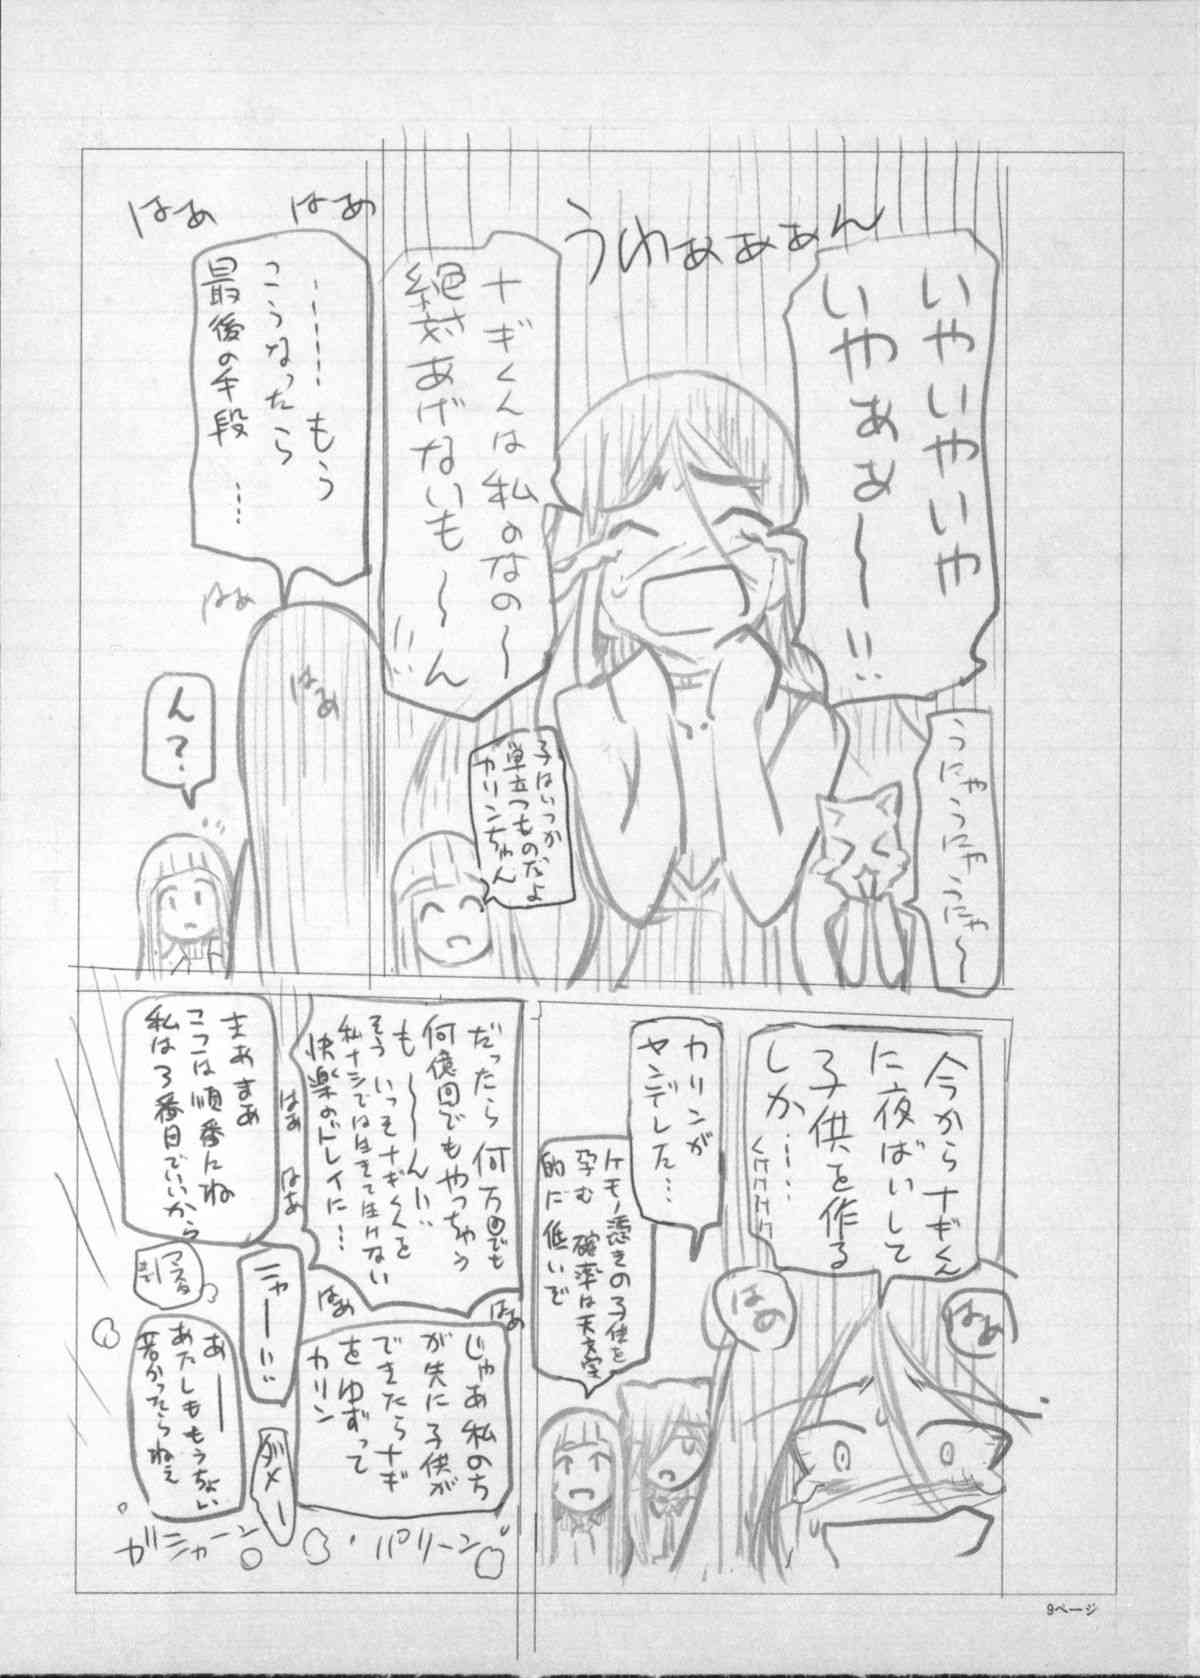 いやいやいや
いやぁぁ〜!!
うわぁぁぁん
うにゃうにゃうにゃ〜
ナギくんは私のなの〜
絶対あげないも〜〜ん
子はいつか
巣立つものだよ
カリンちゃん
はぁ
はぁ
……もう
こうなったら
最後の手段…
はぁ
はぁ
ん?
今からナギくん
に夜ばいして
子供を作る
しか……
くけけけけ
はぁ
はぁ
カリンが
ヤンデレした…
ケモノ憑きの子供を
孕む確率は天文学
的に低いで
だったら何万回でも
何億回でもやっちゃう
も〜〜ん!!
そういっそナギくんを
私ナシでは生きて生けない
快楽のドレイに…
はぁ
はぁ
はぁ
はぁ
じゃあ私のち
が先に子供が
できたらナギ
をゆずって
カリン
まあまあ
ここは順番にね
私は3番目でいいから
マスター
ニャーー!!
ダメー
あーー
あたしももうちょい
若かったらねえ
ガシャーン
パリーン
9ページ